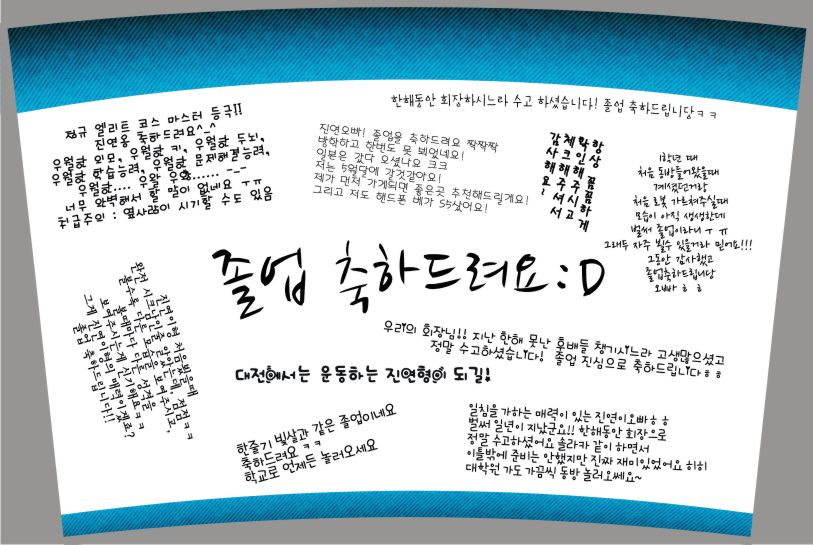 한해동안 회장하시느라 수고 하셨습니다! 졸업 축하드립니당ㅋㅋ
정규 엘리트 코스 마스터 등극!!
진연웅 축하드려요^_^
우월한 외모, 우월한 키, 우월한 두뇌,
우월한 학습능력, 우월한 문제해결능력,
우월한.... 우와 우와...... -_-
너무 완벽해서 할 말이 없네요 ㅜㅠ
취급주의 : 옆사람이 시기할 수도 있음
진연오빠! 졸업을 축하드려요 짝짝짝
방학하고 한번도 못 뵈었네요!
일본은 갔다 오셨나요 크크
저는 5월달에 갈것같아요!
제가 먼저 가게되면 좋은곳 추천해드릴게요!
그리고 저도 핸드폰 베가 S5샀어요!
항상 꼼꼼하게
학인해주시고
체크해주셔서
감사해요~
1학년 때
처음 동방들어왔을때
계셨던거랑
처음 로봇 가르쳐주실때
모습이 아직 생생한데
벌써 졸업이라니ㅜ ㅠ
그래두 자주 뵐수 있을거라 믿어요!!!
그동안 감사했고
졸업축하드립니당
오빠ㅎㅎ
졸업 축하드려요:D
진연이형 처음봤을때
완전 시크남인줄 알았는데. 점점ㅋㅋ
볼수록 다른 모습을 보여 주시고.
볼때마다 다른 성격을
보여주시는게 신기해요ㅋㅋ
그게 진연이형의 매력이겠죠?
졸업 축하드립니다!!
우리의 회장님!! 지난 한해 못난 후배들 챙기시느라 고생많으셨고
정말 수고하셨습니다! 졸업 진심으로 축하드립니다ㅎㅎ
대전에서는 운동하는 진연형이 되길!
한줄기 빛살과 같은 졸업이네요
축하드려요 ㅋㅋ
학교로 언제든 놀러오세요
일침을 가하는 매력이 있는 진연이오빠ㅎㅎ
벌써 일년이 지났군요!! 한해동안 회장으로
정말 수고하셨어요 솔라카 같이 하면서
이틀밖에 준비는 안했지만 진짜 재미있었어요 히히
대학원 가도 가끔씩 동방 놀러오쎄요~